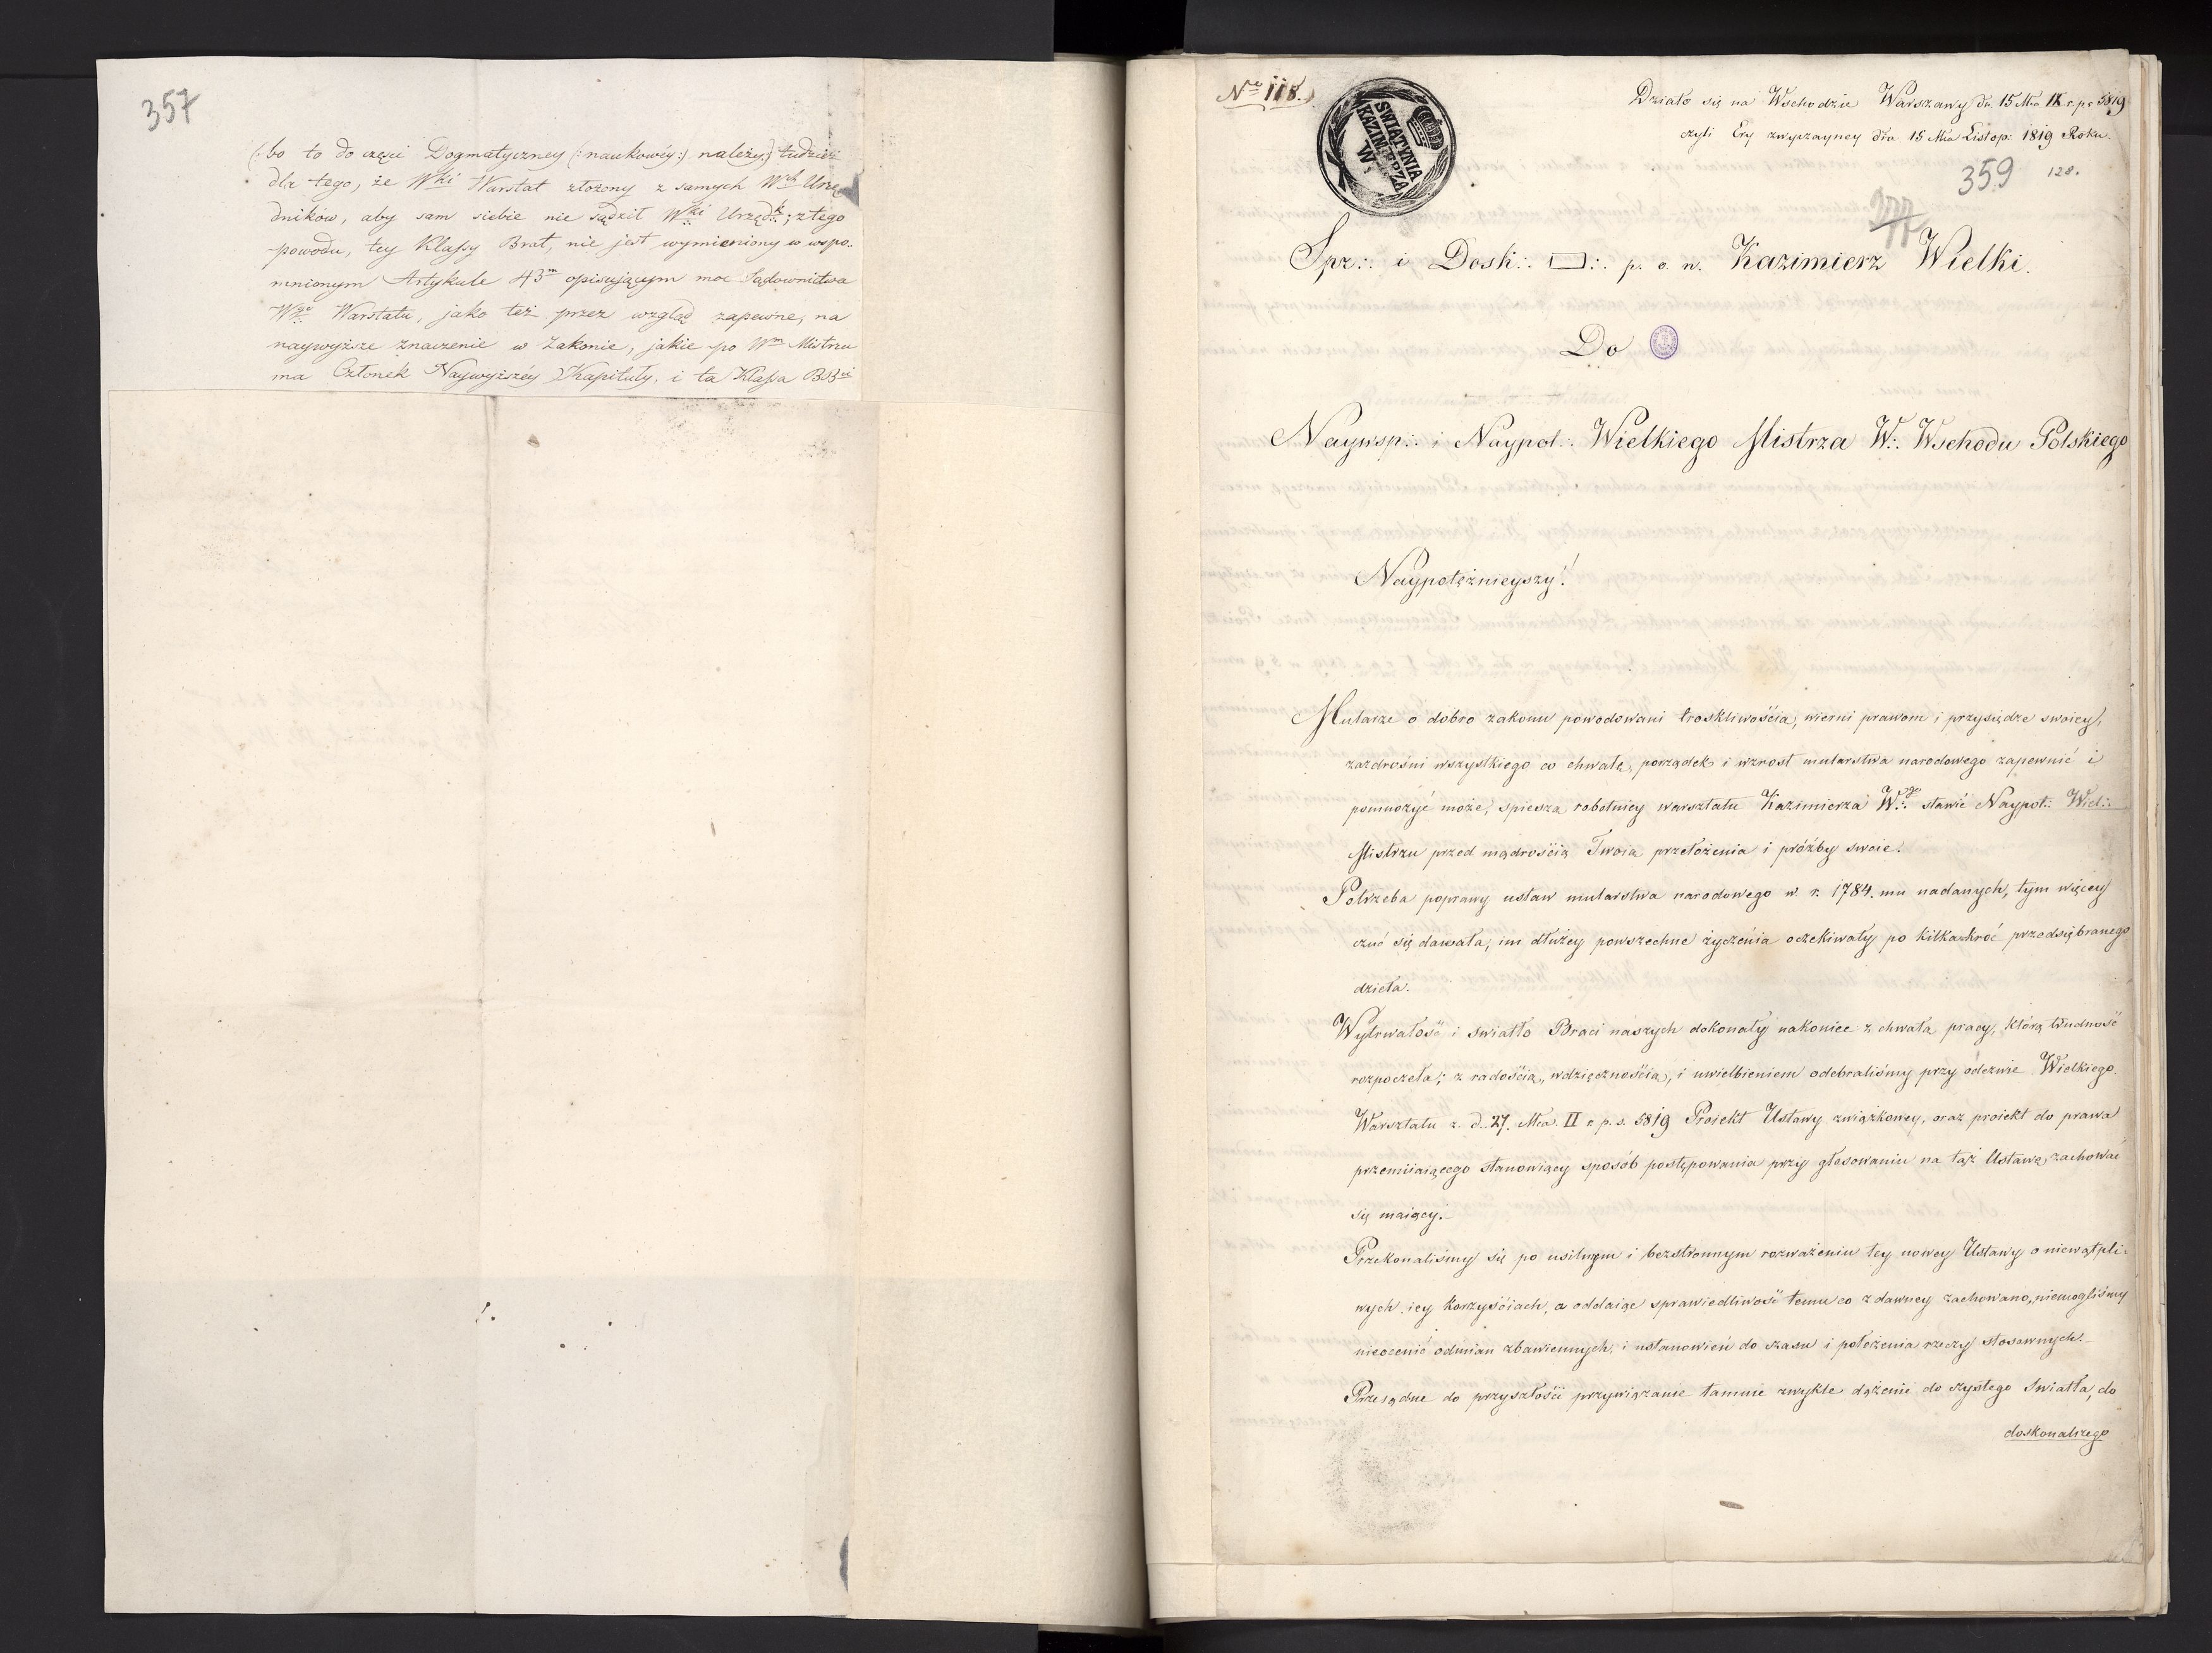 357
(: bo to do częsci Dogmatyczney (: naukowéy :) należy,) tudzież
dla tego, że Wki Warstat złożony z samych Wch Urzę
dników, aby sam siebie nie sądził Wki Urzęd:; z tego
powodu, tey Klassy Brat, nie jest wymieniony w wspo-
mnionym Artykule 43m opisującym moc Sądownictwa
Wgo Warstatu, jako też przez wzgląd zapewne, na
naywyższe znaczenie w Zakonie, jakie po Wm Mistrzu
ma Członek Naywyższéy Kapituły, i ta Klassa BBci
No 118.
ŚWIĄTYNIA
KAZIMIERZA
W
Działo się na Wschodzie Warszawy Dn. 15 Mca IX r. p. s. 5819
czyli Ery zwyczayney dnia 15 Mca Listop: 1819 Roku.
359 128.
377
Spr:. i Dosk:. □:. p. o. n. Kazimierz Wielki.
Do
Naywsp:. i Naypot:. Wielkiego Mistrza W:. Wschodu Polskiego
Naypotężnieyszy!
Mularze o dobro zakonu powodowani troskliwością, wierni prawom i przysiędze swoiey,
zazdrośni wszystkiego co chwałę, porządek i wzrost mularstwa narodowego zapewnić i
pomnożyć może, spieszą robotnicy warsztatu Kazimierza W:.go stawić Naypot:. Wiel:.
Mistrzu przed mądrością Twoią przełożenia i próżby swoie.
Potrzeba poprawy ustaw mularstwa narodowego w r. 1784. mu nadanych, tym więcey
czuć się dawała, im dłużey powszechne życzenia oczekiwały po kilkakroć przedsiębranego
dzieła.
Wytrwałość i światło Braci naszych dokonały nakoniec z chwałą pracy, którą trudność
rozpoczęła; z radością, wdzięcznością, i uwielbieniem odebraliśmy przy odezwie Wielkiego
Warsztatu z. d. 27. Mca. II r. p. s. 5819 Proiekt Ustawy związkowey, oraz proiekt do prawa
przemiiaiącego stanowiący sposób postępowania przy głosowaniu na tąż Ustawę zachować
się maiący.
Przekonaliśmy się po usilnym i bezstronnym rozważeniu tey nowey Ustawy o niewątpli-
wych iey korzyściach, a oddaiąc sprawiedliwość temu co z dawney zachowano, niemogliśmy
nieocenić odmian zbawiennych, i ustanowień do czasu i położenia rzeczy stosownych.
Przesądne do przyszłości przywiązanie tamuie zwykle dążenie do czystego światła, do
doskonalszego